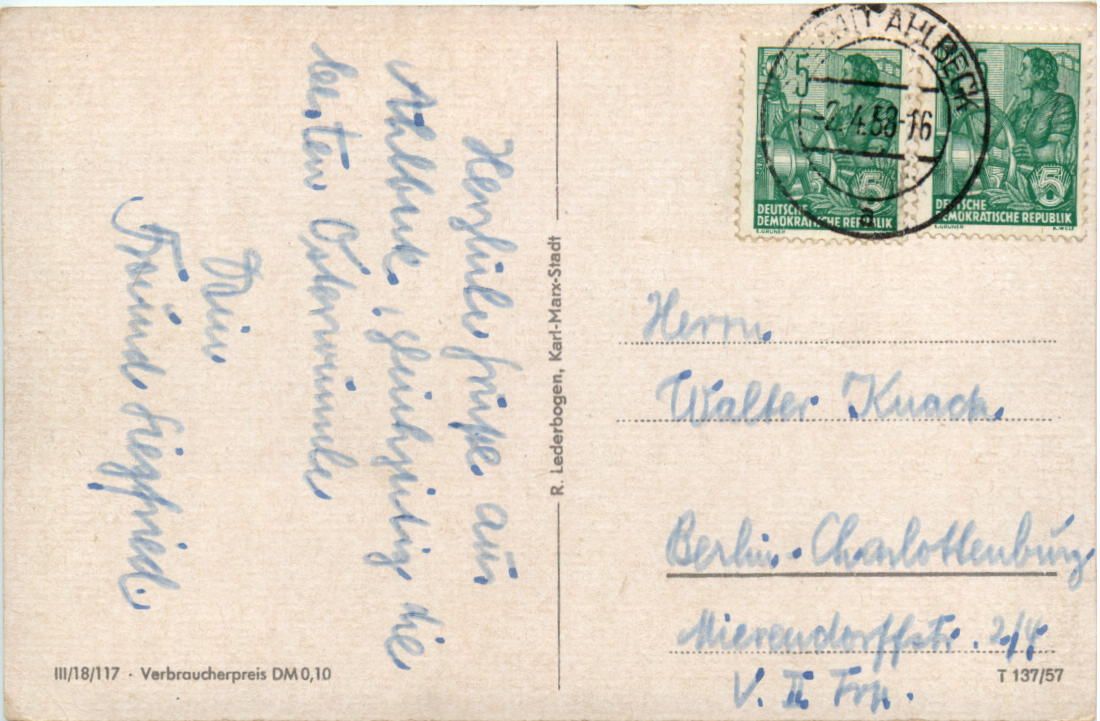 Herzliche Grüße aus
Ahlbeck, gleichzeitig die
besten Osterwünsche
Dein
Freund Siegfried.
R. Lederbogen, Karl-Marx-Stadt
III/18/117 · Verbraucherpreis DM 0,10
AHLBECK
-2.4.58-16
a
5
5
DEUTSCHE
DEMOKRATISCHE REPUBLIK
E.GRUNER
5
5
DEUTSCHE
DEMOKRATISCHE REPUBLIK
E.GRUNER K.WOLF
Herrn
Walter Knach
Berlin-Charlottenburg
Mierendorffstr. 2/4
V. II Trp.
T 137/57